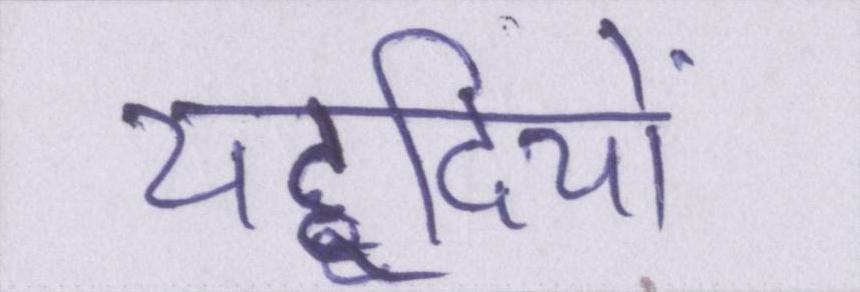 यहूदियों